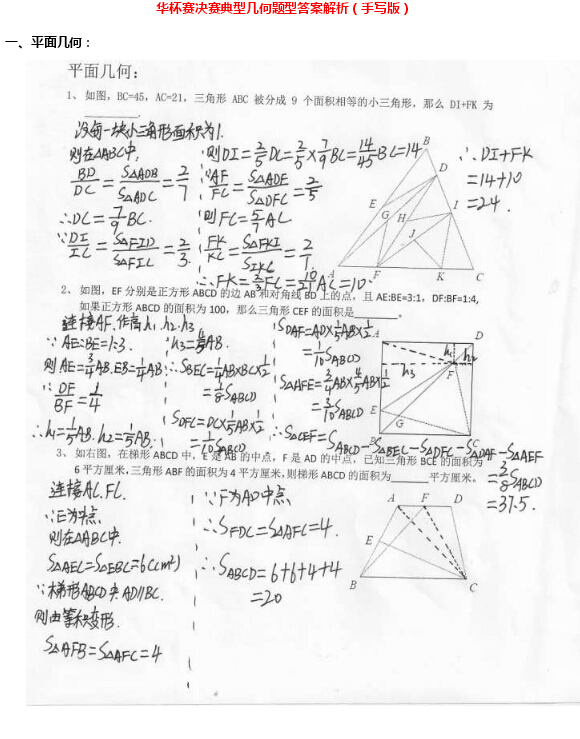 华杯赛决赛典型几何题型答案解析(手写版)
一、平面几何:
平面几何:
1、 如图,BC=45,AC=21,三角形 ABC 被分成 9 个面积相等的小三角形,那么 DI+FK 为
________.
设每一块小三角形面积为1.
则在△ABC中,
BD/DC=S△ADB/S△ADC=2/7
∴DC=7/9BC.
∵DI/IC=S△FID/S△FIC=2/3.
则DI=2/5DC=2/5×7/9BC=14/45BC=14
∵AF/FC=S△ADF/S△DFC=2/5
则FC=5/7AC
FK/KC=S△FKI/SIKC=2/1
∴FK=2/3FC=10/21AC=10
∴DI+FK
=14+10
=24.
B
D
E
G
H
I
J
A
F
K
C
2、 如图,EF 分别是正方形 ABCD 的边 AB 和对角线 BD 上的点,且 AE:BE=3:1,DF:BF=1:4,
如果正方形 ABCD 的面积为 100,那么三角形 CEF 的面积是________。
连接AF.作高h₁.h₂.h₃
∵AE:BE=1:3.
则AE=3/4AB.EB=1/4AB
∵DF/BF=1/4
∴h₁=1/5AB.h₂=1/5AB.
h₃=4/5AB.
∴S△BEC=1/4AB×BC×1/2
=1/8SABCD
S△DFC=DC×1/5AB×1/2
=1/10SABCD
S△DAF=AD×1/5AB×1/2
=1/10SABCD
S△AFE=3/4AB×4/5AB×1/2
=3/10SABCD
∴S△CEF=SABCD-S△BEC-S△DFC-S△DAF-S△AEF
=3/8SABCD
=37.5.
A
D
h₁
h₂
h₃
F
E
G
B
C
3、 如右图,在梯形 ABCD 中,E 是 AB 的中点,F 是 AD 的中点,已知三角形 BCE 的面积为
6 平方厘米,三角形 ABF 的面积为 4 平方厘米,则梯形 ABCD 的面积为______平方厘米。
连接AC.FC.
∵E为中点
则在△ABC中.
S△AEC=S△EBC=6(cm²)
∵梯形ABCD中AD//BC.
则由等积变形.
S△AFB=S△AFC=4
∵F为AD中点
∴SFDC=S△AFC=4.
∴SABCD=6+6+4+4
=20
A
F
D
E
B
C